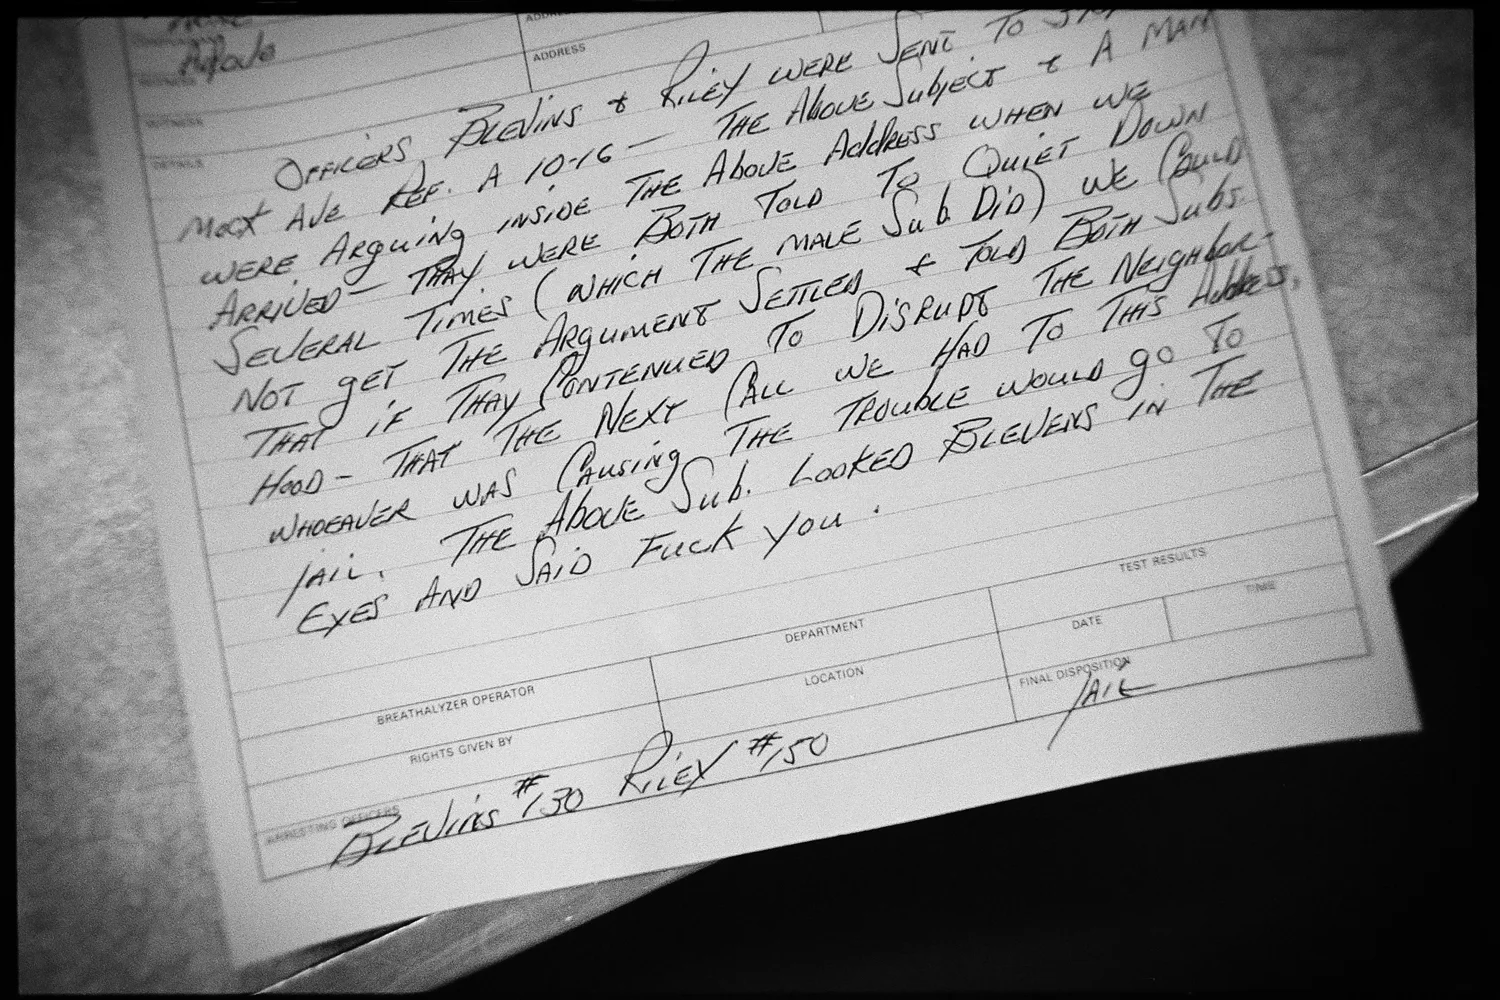 ADDRESS
ADDRESS
WITNESS
WITNESS
DETAILS
OFFICERS BLEVINS & RILEY WERE SENT TO
AVE REF. A 10-16 — THE ABOVE SUBJECT & A MAN
WERE ARGUING INSIDE THE ABOVE ADDRESS WHEN WE
ARRIVED — THAY WERE BOTH TOLD TO QUIET DOWN
SEVERAL TIMES (WHICH THE MALE SUB DID) WE COULD
NOT GET THE ARGUMENT SETTLED & TOLD BOTH SUBS.
THAT IF THAY CONTENUED TO DISRUPT THE NEIGHBOR-
HOOD - THAT THE NEXT CALL WE HAD TO THIS ADDRESS,
WHOEAVER WAS CAUSING THE TROUBLE WOULD GO TO
JAIL. THE ABOVE SUB. LOOKED BLEVENS IN THE
EYES AND SAID FUCK YOU.
TEST RESULTS
BREATHALYZER OPERATOR DEPARTMENT DATE TIME
RIGHTS GIVEN BY LOCATION FINAL DISPOSITION
JAIL
ARRESTING OFFICERS
BLEVINS #130 RILEY #150